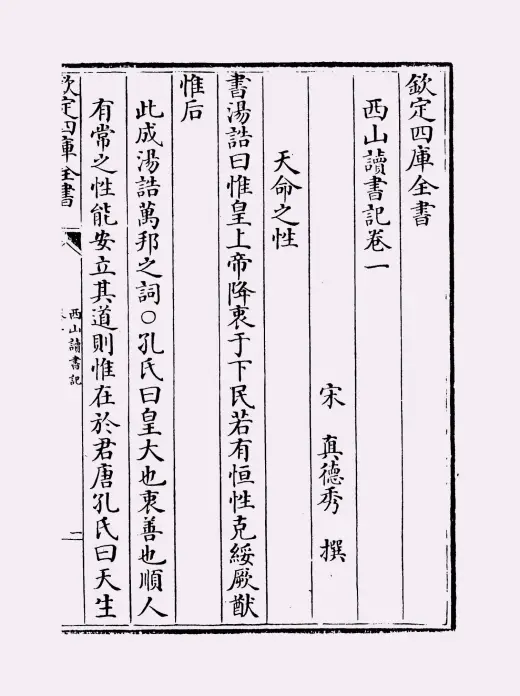 欽定四庫全書
西山讀書記卷一
宋　真德秀　撰
天命之性
書湯誥曰惟皇上帝降衷于下民若有恒性克綏厥猷
惟后
此成湯誥萬邦之詞○孔氏曰皇大也衷善也順人
有常之性能安立其道則惟在於君唐孔氏曰天生
欽定四庫全書
西山讀書記